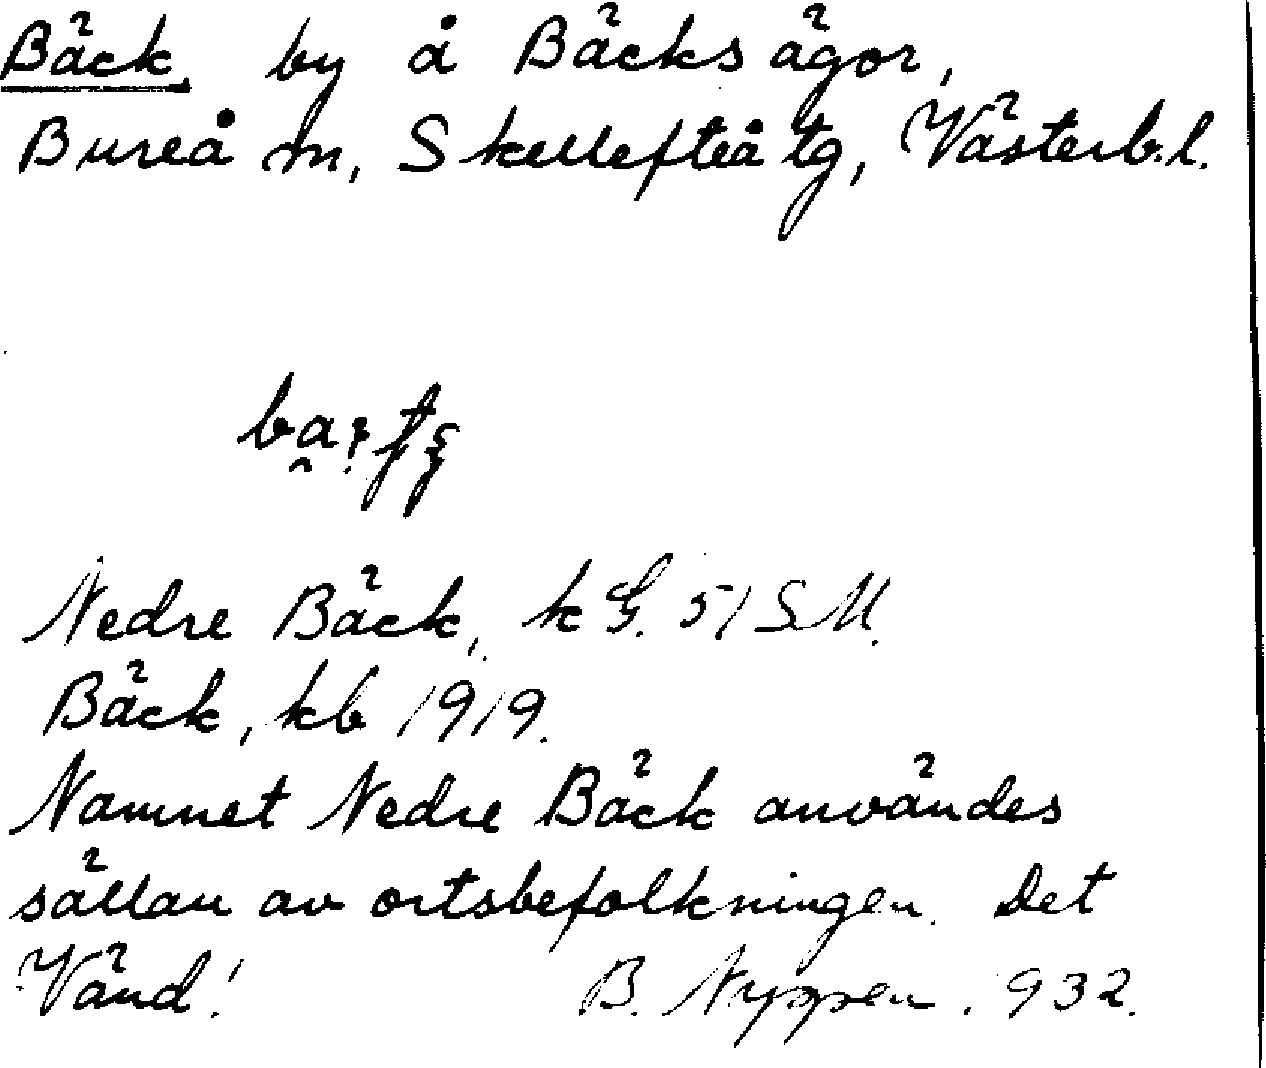 Bäck, by å Bäcks ägor,
Bureå m, Skellefteå tg, Västerb.l.
Nedre Bäck, k G. 51 S.M.
Bäck, kb 1919.
Namnet Nedre Bäck användes
sällan av ortsbefolkningen. Det
Vänd! B. Nyppen. 932.